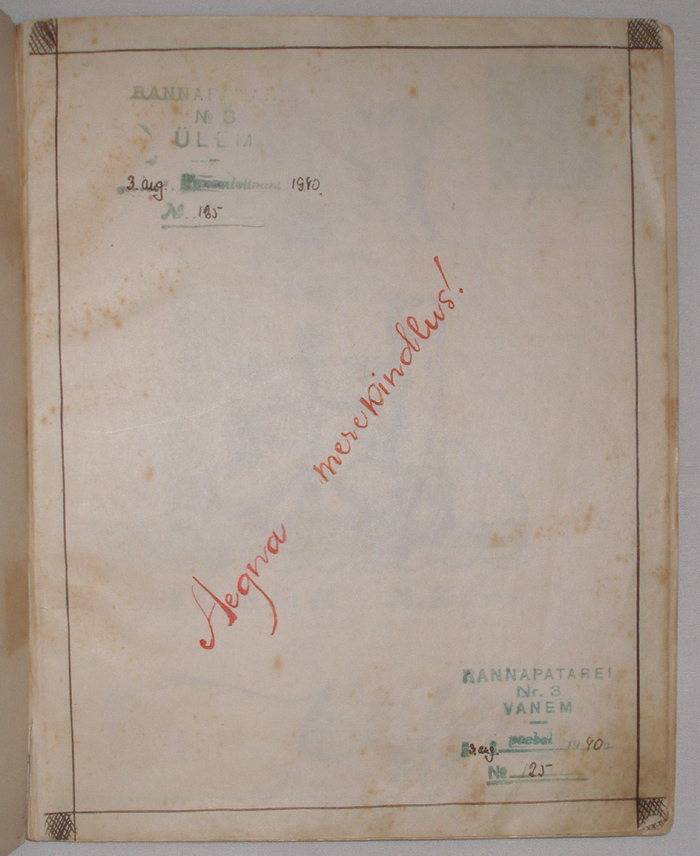 RANNAPATAREI
№ 3
ÜLEM
3. aug. 1940.
№ 125
Aegna merekindlus!
RANNAPATAREI
Nr. 3
VANEM
3. aug. 1940a
№ 125